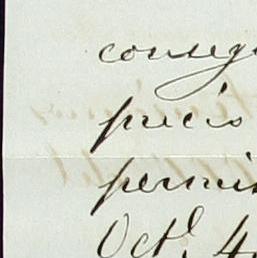 conseq
precis
permis
Oct. 4